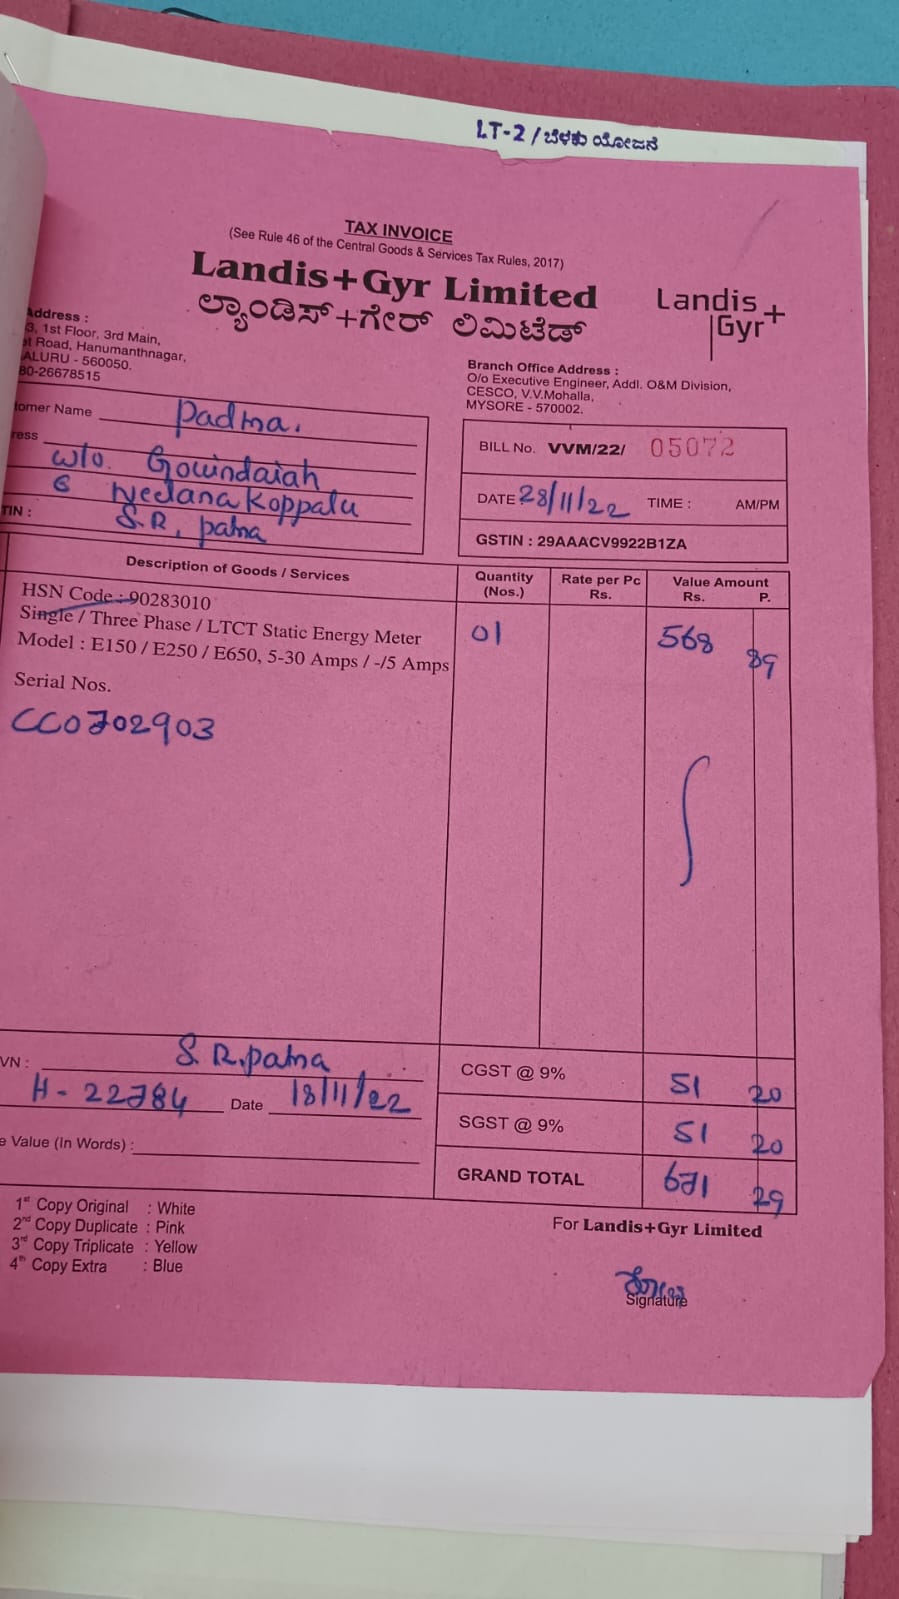 LT-2 / ಬೆಳಕು ಯೋಜನೆ
TAX INVOICE
(See Rule 46 of the Central Goods & Services Tax Rules, 2017)
Landis+Gyr Limited
ಲ್ಯಾಂಡಿಸ್+ಗೇರ್ ಲಿಮಿಟೆಡ್
Landis+
Gyr
Address :
3, 1st Floor, 3rd Main,
Road, Hanumanthnagar,
ALURU - 560050.
80-26678515
Branch Office Address :
O/o Executive Engineer, Addl. O&M Division,
CESCO, V.V.Mohalla,
MYSORE - 570002.
omer Name Padma.
ress
w/o. Gowindaiah
Koppalu
TIN : S.R. patna
BILL No. VVM/22/ 05072
DATE : 28/11/22 TIME : AM/PM
GSTIN : 29AAACV9922B1ZA
Description of Goods / Services Quantity (Nos.) Rate per Pc Rs. Value Amount Rs. P.
HSN Code : 90283010
Single / Three Phase / LTCT Static Energy Meter 01 568 89
Model : E150 / E250 / E650, 5-30 Amps / -/5 Amps
Serial Nos.
CC0702903
VN : S. R. patna
H - 22784 Date 18/11/22
e Value (In Words) :
CGST @ 9% 51 20
SGST @ 9% 51 20
GRAND TOTAL 671 29
1st Copy Original : White
2nd Copy Duplicate : Pink
3rd Copy Triplicate : Yellow
4th Copy Extra : Blue
For Landis+Gyr Limited
Signature